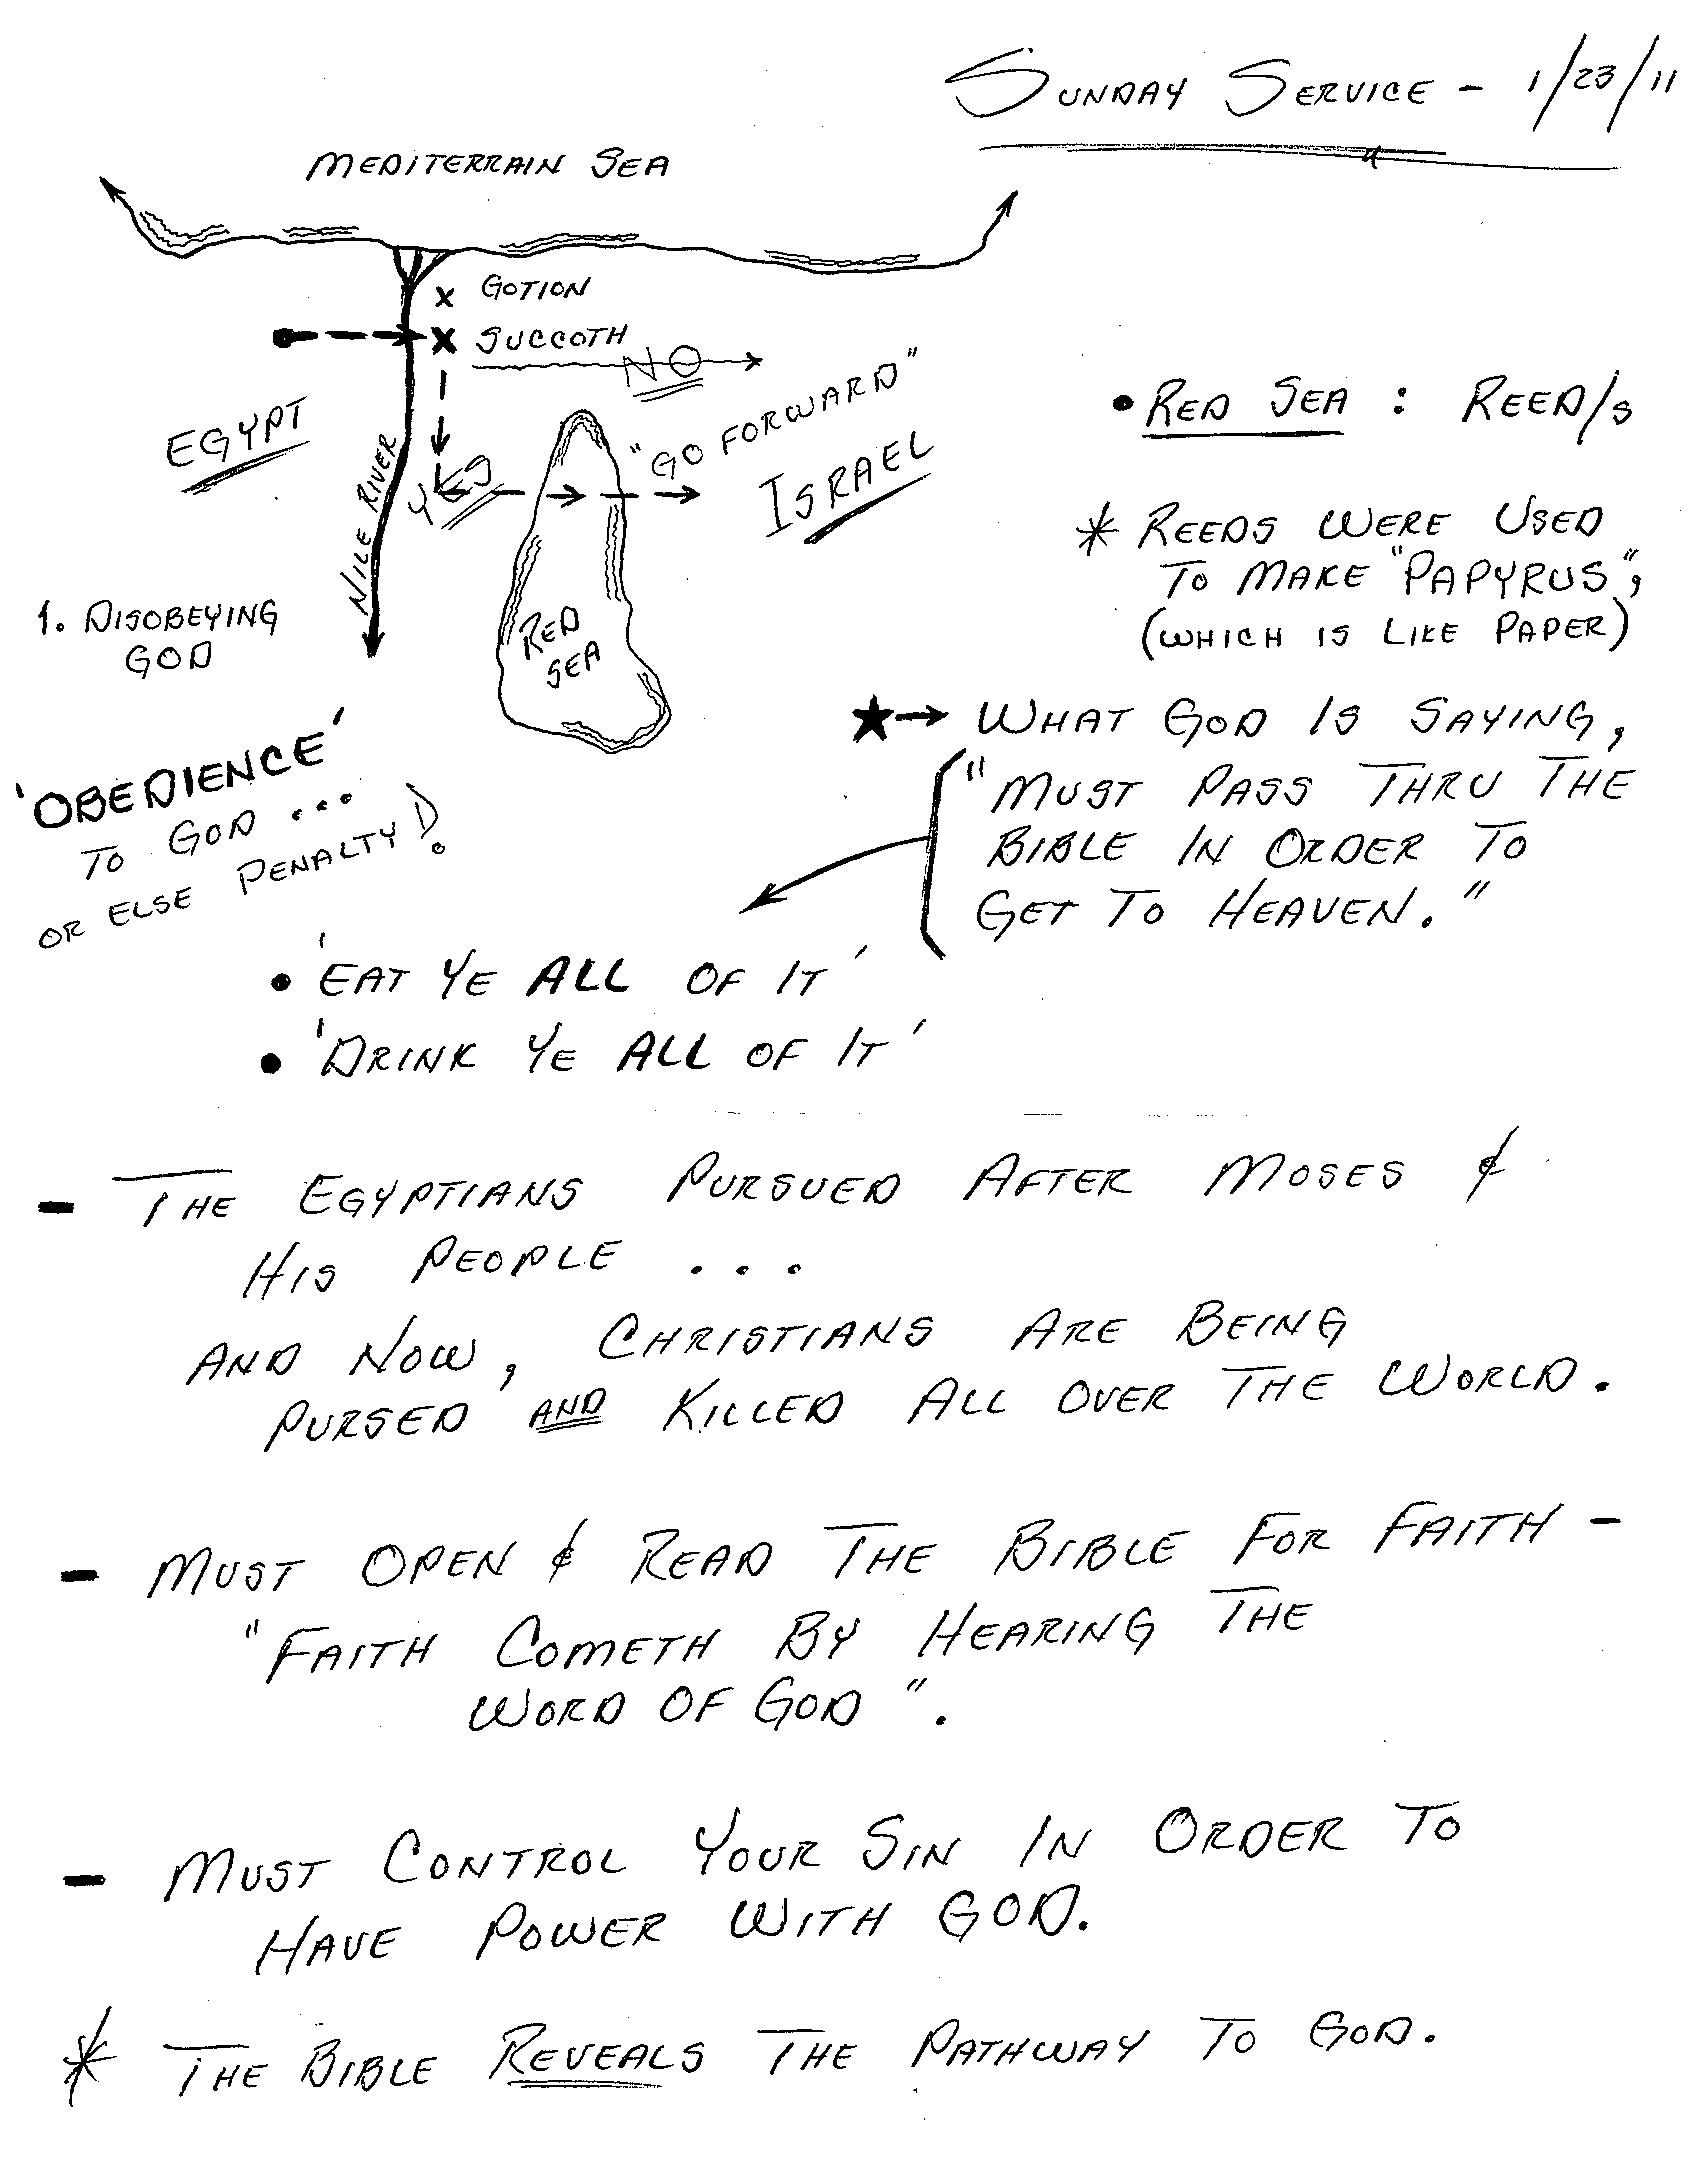 SUNDAY SERVICE - 1/23/11
MEDITERRAIN SEA
x GOTION
X SUCCOTH
NO
EGYPT
NILE RIVER
YES
"GO FORWARD"
ISRAEL
RED
SEA
1. DISOBEYING
GOD
'OBEDIENCE'
TO GOD ...
OR ELSE PENALTY!
• RED SEA : REED/S
* REEDS WERE USED
TO MAKE "PAPYRUS",
(WHICH IS LIKE PAPER)
★→ WHAT GOD IS SAYING,
"MUST PASS THRU THE
BIBLE IN ORDER TO
GET TO HEAVEN."
• 'EAT YE ALL OF IT'
• 'DRINK YE ALL OF IT'
- THE EGYPTIANS PURSUED AFTER MOSES &
HIS PEOPLE ...
AND NOW, CHRISTIANS ARE BEING
PURSED AND KILLED ALL OVER THE WORLD.
- MUST OPEN & READ THE BIBLE FOR FAITH -
"FAITH COMETH BY HEARING THE
WORD OF GOD".
- MUST CONTROL YOUR SIN IN ORDER TO
HAVE POWER WITH GOD.
* THE BIBLE REVEALS THE PATHWAY TO GOD.